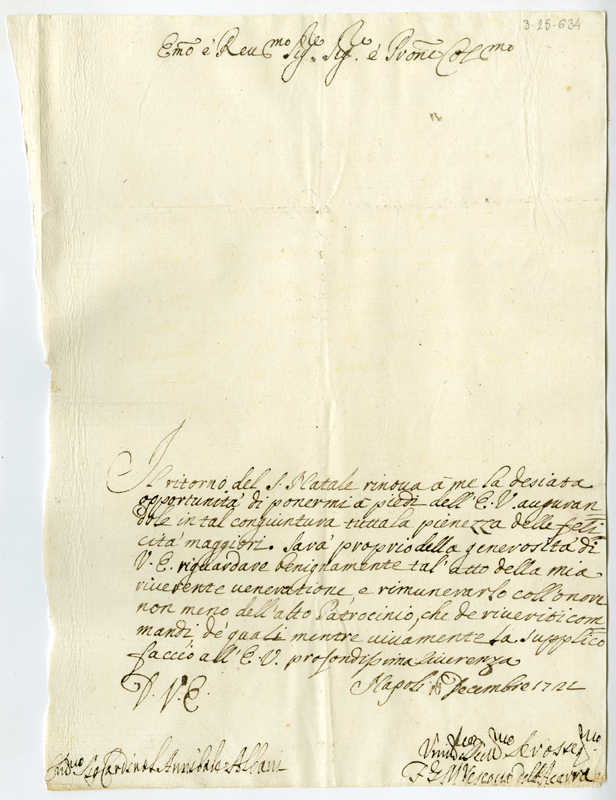 3-25-634
Emo è Reumo Sige Sige è Prone Colmo
Il ritorno del S. Natale rinoua à me la desiata
opportunità di ponermi à piedi dell'E. V. auguran
dole in tal congiuntura la pienezza delle feli
cità maggiori. Sarà proprio della generosità di
V. E. riguardare benignamente tal'atto della mia
riuerente ueneratione, e rimunerarlo coll'onore
non meno dell'alto Patrocinio, che de riueriti com
mandi, de' quali mentre uiuamente la supplico
faccio all'E. V. profondissima riuerenza
D. V. E. Napoli Decembre 1721
Sig Cardinal Annibale Albani
Vescouo dell'Acerra